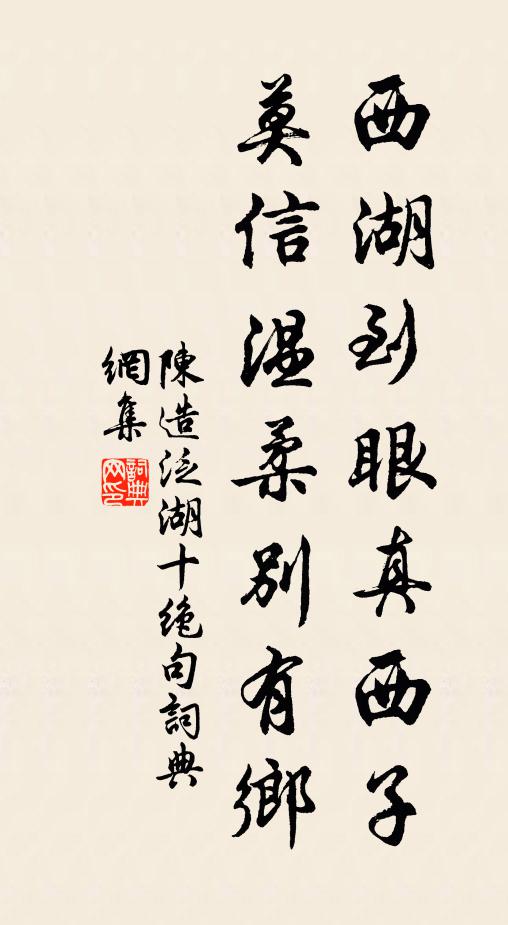 西湖到眼真西子
莫信温柔別有鄉
陳造泛湖十绝句詞典
網集
詞典网印